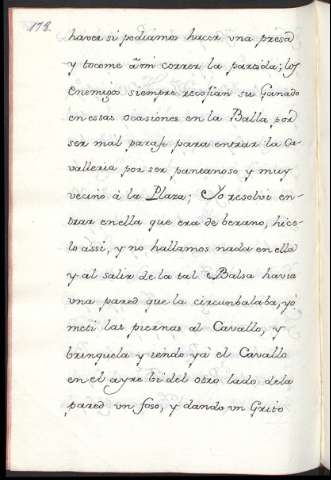 178.
haver si podiamos hacer vna presa
y tocome âmi correr la partida; los
enemigos siempre recosian su Ganado
en estas ocasiones en la Balsa por
ser mal paraje para entrar la Ca-
valleria por ser pantanoso y muy
vecino â la Plaza; Yo resolvi en-
trar en ella que era de berano, hice-
lo assi, y no hallamos nada en ella
y al salir de la tal Balsa havia
vna pared que la circunbalaba, yô
meti las piernas al Cavallo, y
brinquela y iendo yâ el Cavallo
en el ayre bi del otro lado dela
pared vn foso, y dando vn Grito